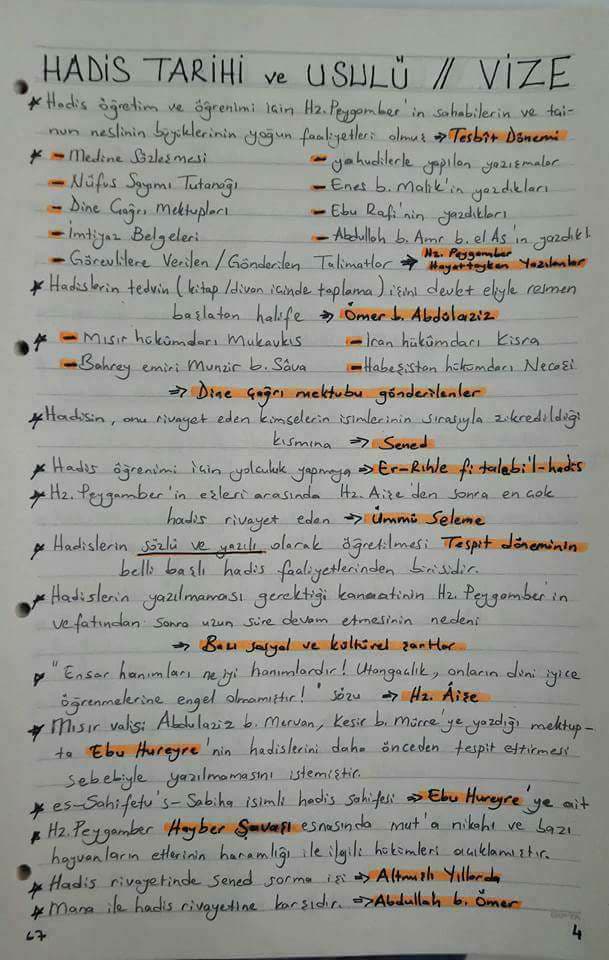 HADİS TARİHİ ve USULÜ // VİZE
* Hadis öğretim ve öğrenimi için Hz. Peygamber'in sahabilerin ve tai-
nun neslinin büyüklerinin yoğun faaliyetleri olmuş → Tesbit Dönemi
* - Medine Sözleşmesi - yahudilerle yapılan yazışmalar
- Nüfus Sayımı Tutanağı - Enes b. Malik'in yazdıkları
- Dine Çağrı Mektupları - Ebu Rafi'nin yazdıkları
- İmtiyaz Belgeleri - Abdullah b. Amr b. el As'ın yazdıkl
- Görevlilere Verilen / Gönderilen Talimatlar → Hz. Peygamber Hayattayken Yazılanlar
* Hadislerin tedvin (kitap / divan içinde toplama) işini devlet eliyle resmen
başlatan halife → Ömer b. Abdülaziz
* - Mısır hükümdarı Mukavkıs - İran hükümdarı Kisra
- Bahrey emiri Munzir b. Sâva - Habeşistan hükümdarı Necaşi
→ Dine Çağrı mektubu gönderilenler
* Hadisin, onu rivayet eden kimselerin isimlerinin sırasıyla zikredildiği
kısmına → Sened
* Hadis öğrenimi için yolculuk yapmaya → Er-Rihle fi talebi'l-hadis
* Hz. Peygamber'in eşleri arasında Hz. Aişe'den sonra en çok
hadis rivayet eden → Ümmü Seleme
* Hadislerin sözlü ve yazılı olarak öğretilmesi Tespit döneminin
belli başlı hadis faaliyetlerinden birisidir.
* Hadislerin yazılmaması gerektiği kanaatinin Hz. Peygamber'in
vefatından sonra uzun süre devam etmesinin nedeni
→ Bazı sosyal ve kültürel şartlar
* "Ensar hanımları ne iyi hanımlardır! Utangaçlık, onların dini iyice
öğrenmelerine engel olmamıştır!" sözü → Hz. Âişe
* Mısır valisi Abdulaziz b. Mervan, Kesir b. Mürre'ye yazdığı mektup-
ta Ebu Hureyre'nin hadislerini daha önceden tespit ettirmesi
sebebiyle yazılmamasını istemiştir.
* es-Sahifetu's-Sahiha isimli hadis sahifesi → Ebu Hureyre'ye ait
* Hz. Peygamber Hayber Savaşı esnasında mut'a nikahı ve bazı
hayvanların etlerinin haramlığı ile ilgili hükümleri açıklamıştır.
* Hadis rivayetinde sened sorma işi → Altmışlı Yıllarda
* Mana ile hadis rivayetine karşıdır. → Abdullah b. Ömer
67 4